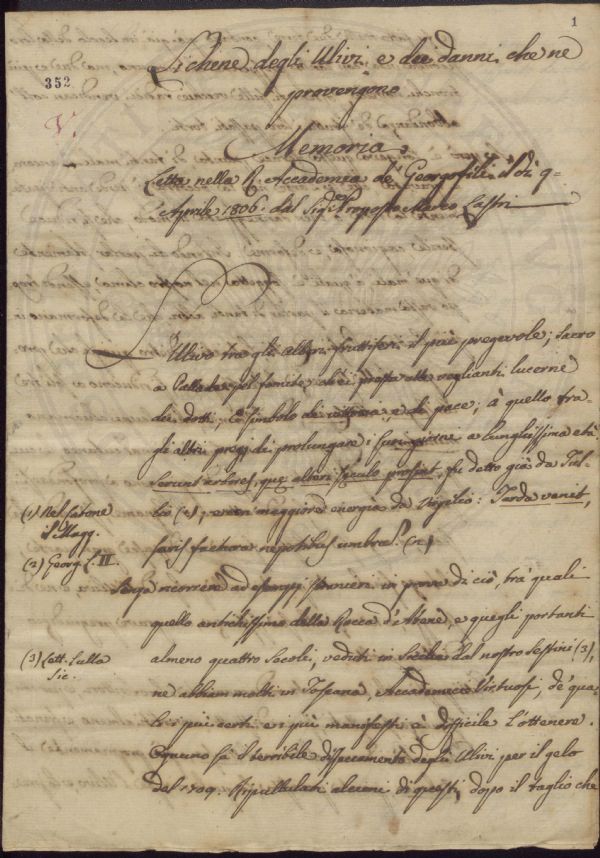 1
352
V.
Lichene degli Ulivi e dei danni, che ne
provengono
Memoria
Letta nella R. Accademia de' Georgofili il dì 9
Aprile 1806. dal Sig. Proposto Marco Lastri
L'Ulivo tra gli alberi fruttiferi il più pregevole; sacro
a Pallade pel fomite, ch'ei presta alle veglianti lucerne
dei dotti, e simbolo di vittoria, e di pace; à quello fra
gli altri pregj di prolungare i suoi giorni a lunghissima età.
Serunt arbores, quæ alteri sæculo prosint, fu detto già da Tul-
(1) Nel Catone
il Magg.
lio (1), e con maggiore energia da Virgilio: Tarda venit,
seris factura nepotibus umbram. (2)
(2) Georg. L. II.
Senza ricorrere ad esempj stranieri in prova di ciò, tra' quali
quello antichissimo della Rocca d'Atene, e quegli portanti
(3) Lett. sulla
Sic.
almeno quattro Secoli, veduti in Sicilia dal nostro Sestini (3),
ne abbiam molti in Toscana, Accademici Virtuosi, de' qua-
li più certi e più manifesti è difficile l'ottenere.
Ognuno sà il terribile disseccamento degli Ulivi per il gelo
del 1709. Ripullulati alcuni di questi, dopo il taglio che